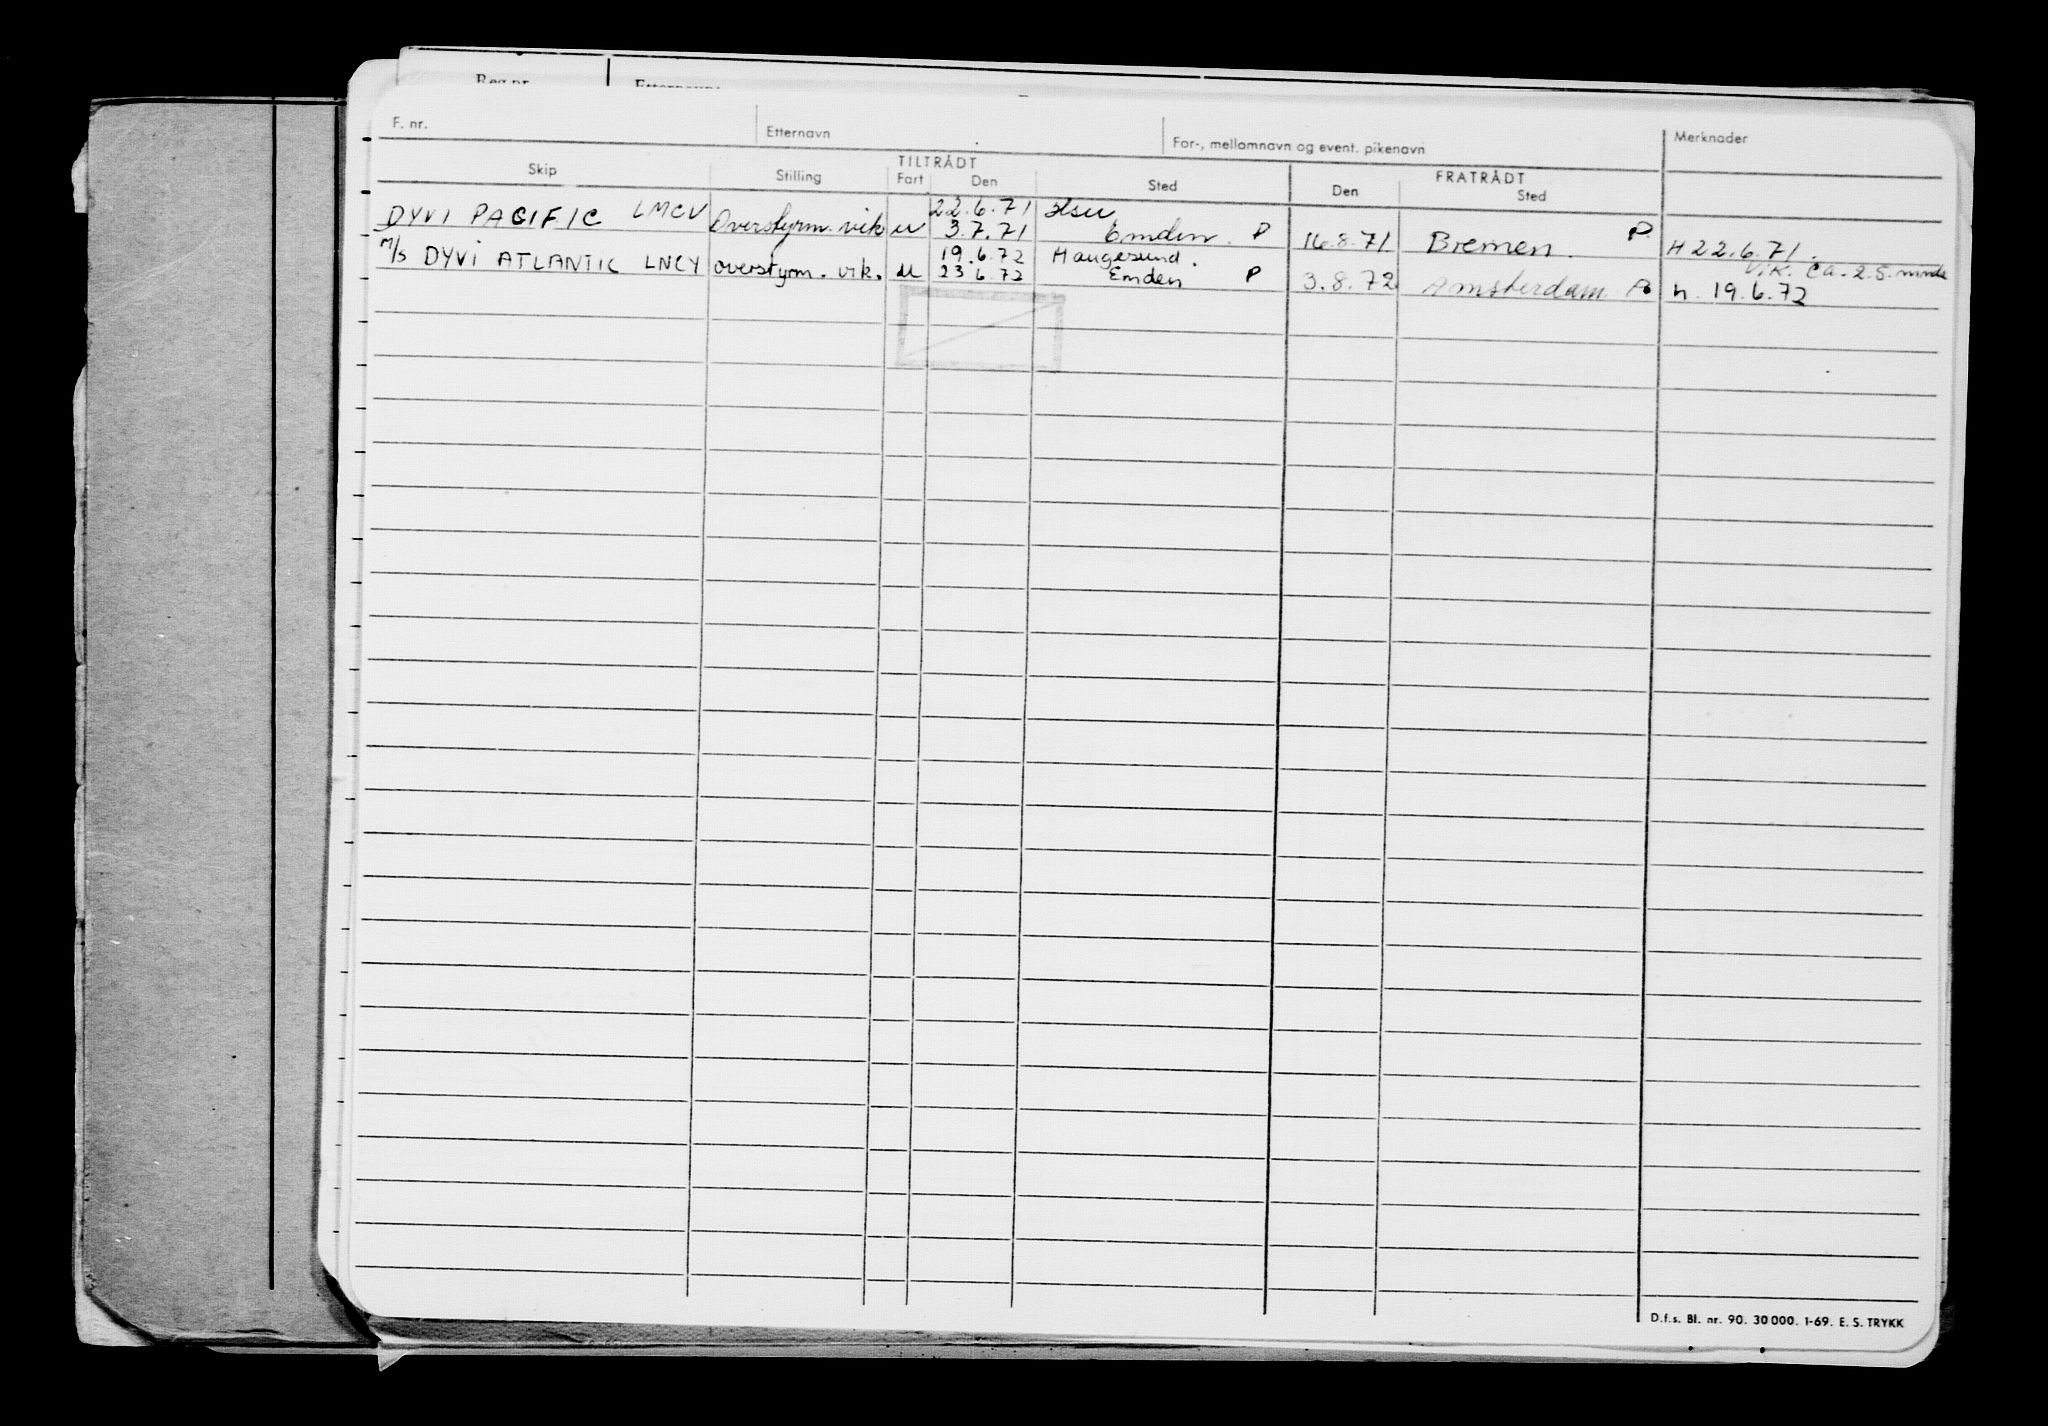 Reg.nr. Etternavn
F. nr. Etternavn For-, mellomnavn og event. pikenavn Merknader
TILTRÅDT FRATRÅDT
Skip Stilling Fart Den Sted Den Sted
22.6.71
DYVI PACIFIC LMCV Overstyrm. vik u 3.7.71 Emden. P 16.8.71 Bremen. P H 22.6.71.
19.6.72 Haugesund. Vik. ca. 2.5. mnde
M/S DYVI ATLANTIC LNCY overstyrm. vik. u 23.6.72 Emden P 3.8.72 Amsterdam P h. 19.6.72
D.f.s. Bl. nr. 90. 30 000. 1-69. E. S. TRYKK